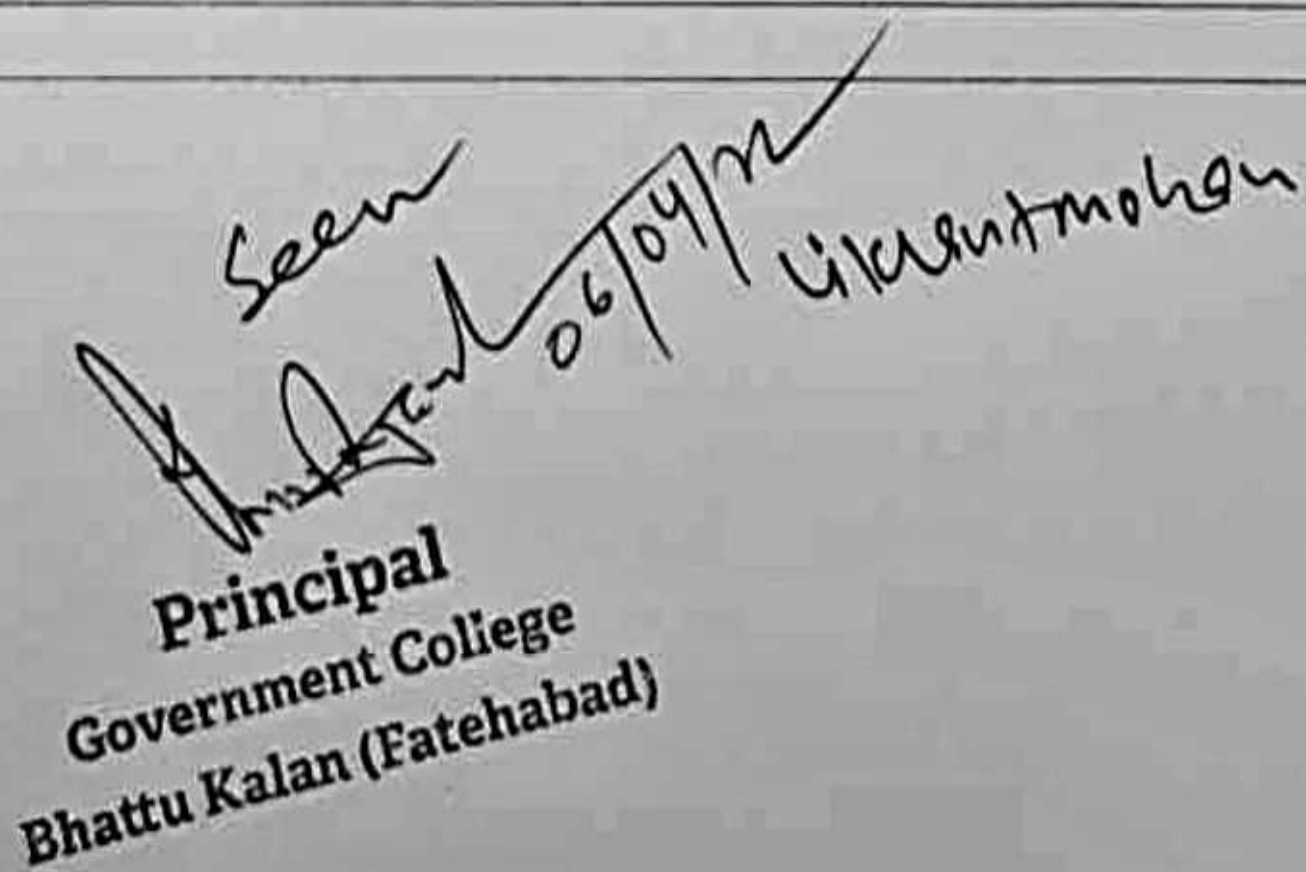 Seen
06/04/22
Vikrantmohan
Principal
Government Coliege
Bhattu Kalan (Fatehabad)